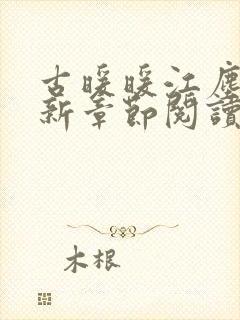 古暖暖江塵
新章節閱讀
木根